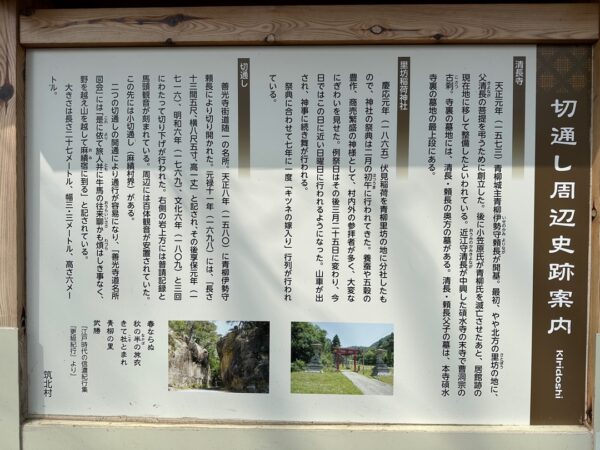 切通し周辺史跡案内
Kiridoshi
清長寺
天正元年（一五七三）青柳城主青柳伊勢守頼長が開基。最初、やや北方の里坊の地に、
父清長の菩提を弔うために創立した。後に小笠原氏が青柳氏を滅亡させたあと、居館跡の
現在地に移して整備したといわれている。近江守清長が中興した碩水寺の末寺で曹洞宗の
古刹。寺裏の墓地には、清長・頼長の奥方の墓がある。清長・頼長父子の墓は、本寺碩水
寺裏の墓地の最上段にある。
里坊稲荷神社
慶応元年（一八六五）伏見稲荷を青柳里坊の地に分社したも
ので、神社の祭典は二月の初午に行われてきた。養蚕や五穀の
豊作、商売繁盛の神様として、村内外の参拝者が多く、大変な
にぎわいを見せた。例祭日はその後三月二十五日に変わり、今
日ではこの日に近い日曜日に行われるようになった。山車が出
され、神事に続き舞が行われる。
祭典に合わせて七年に一度「キツネの嫁入り」行列が行われ
ている。
切通し
善光寺街道随一の名所。天正八年（一五八〇）に青柳伊勢守
頼長により切り開かれた。元禄十一年（一六九八）には、「長さ
十三間五尺、横八尺五寸、高一丈」と記され その後享保元年（一
七一六）、明和六年（一七六九）、文化六年（一八〇九）と三回
にわたって切り下げが行われた。右側の岩上方には普請記録と
馬頭観音が刻まれている。周辺には百体観音が安置されていた。
この先には小切通し（麻績村界）がある。
二つの切通しの開通により通行が容易になり、「善光寺道名所
図会」には「是に依て旅人并に牛馬の往来聊かも煩はしき事なく、
野を越え山を越して麻績宿に到る」と記されている。
大きさは長さ二十七メートル、幅三・三メートル、高さ六メー
トル。
春ならぬ
秋の半の旅衣
きて社とまれ
青柳の里
武勝
（江戸時代の信濃紀行集
「更級紀行」より）
筑北村